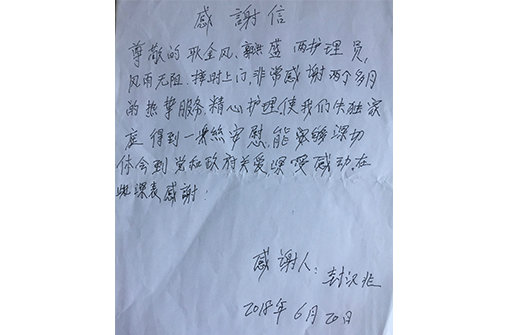 感謝信
尊敬的耿金风、盛两护理员,
风雨无阻、按时上门,非常感谢两个多月
的热挚服务,精心护理,使我们失独家
庭得到一丝安慰,能够深切
体会到党和政府关爱,深受感动,在
此深表感谢!
感谢人:封汉兆
2018年6月20日